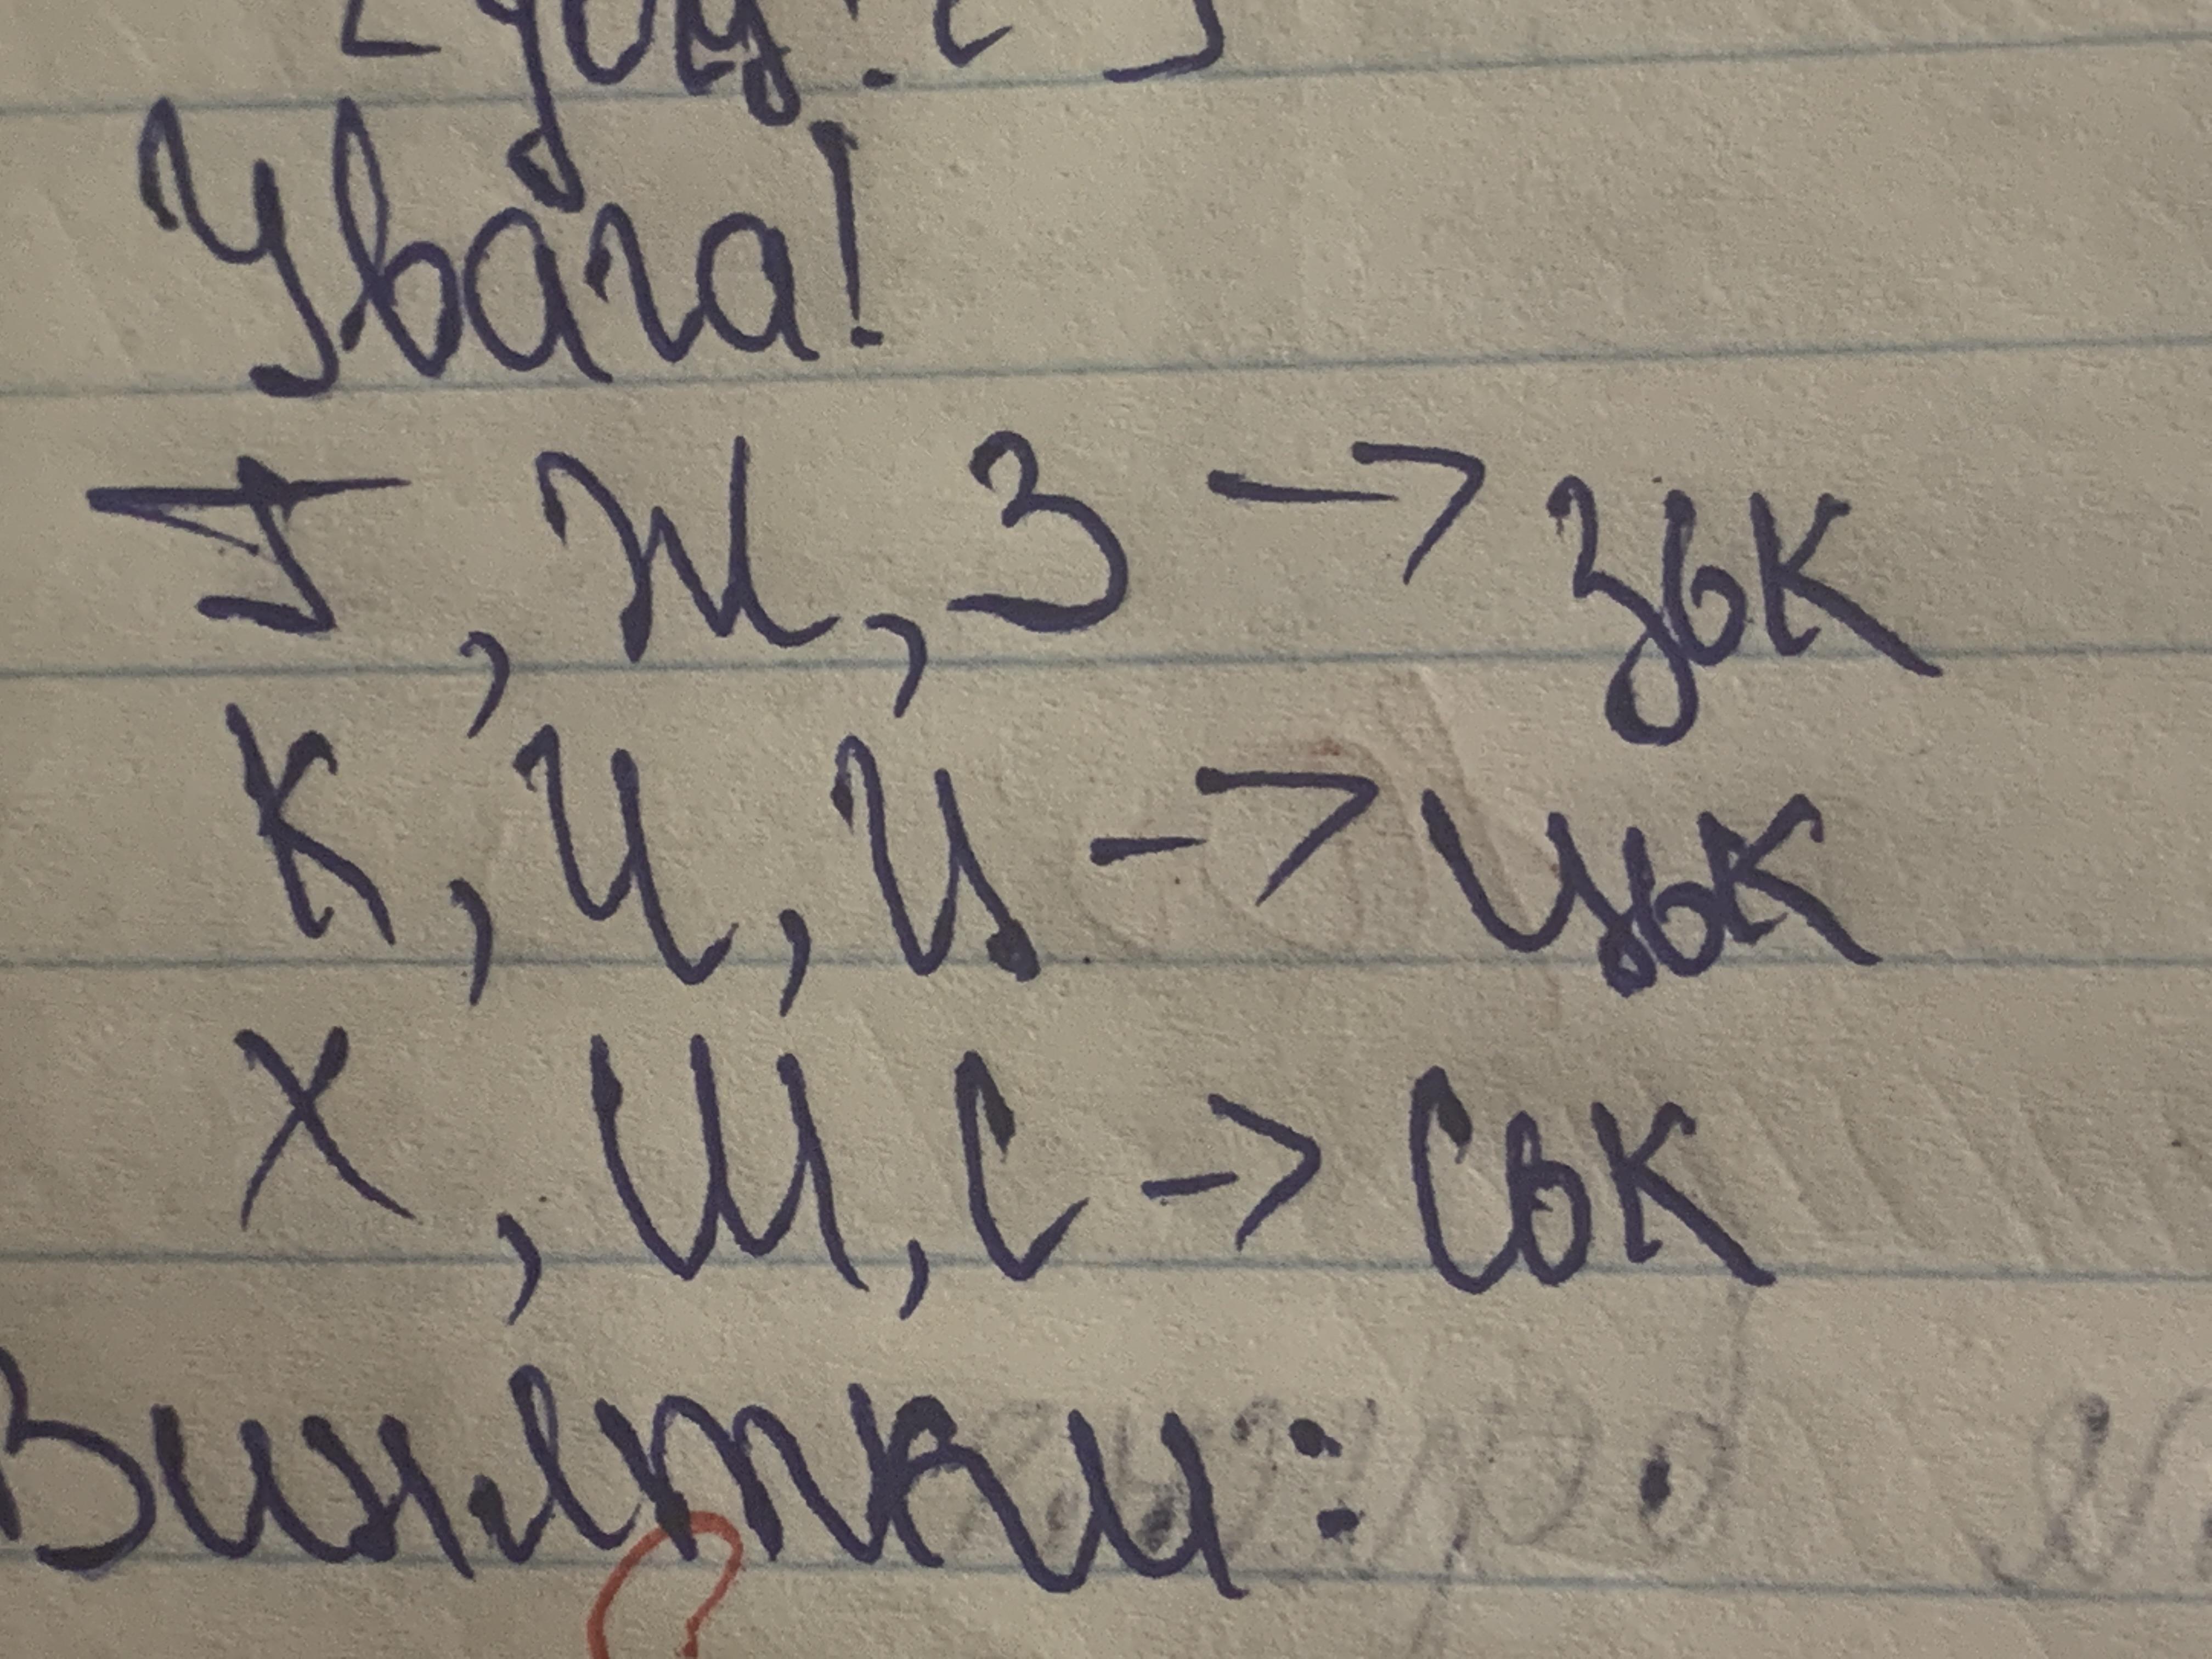 Увага!
Г, Ж, З → зьк
К, Ч, Ц → цьк
Х, Ш, С → ськ
Винятки: